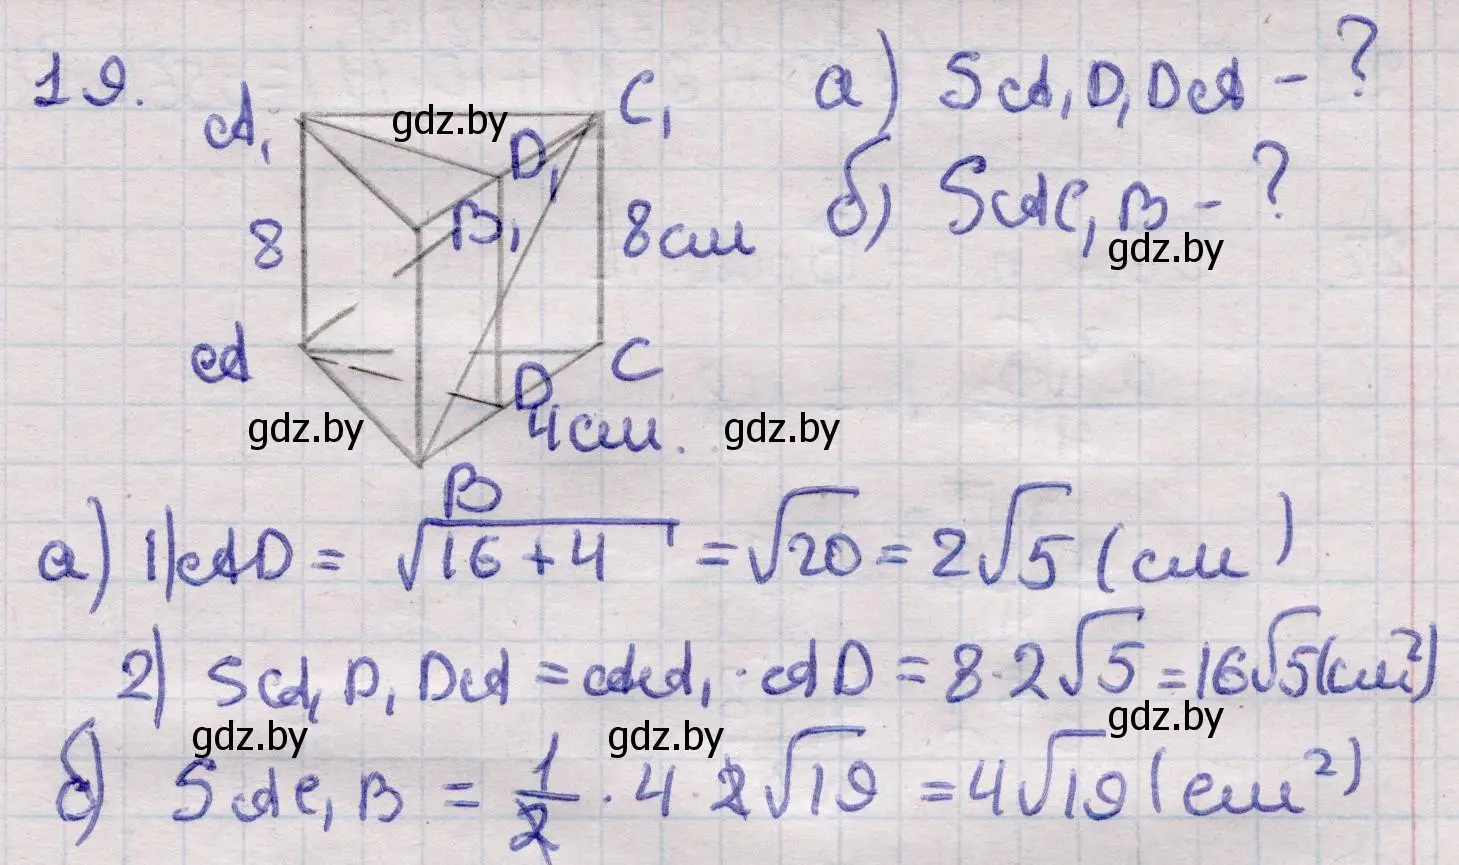 19.
A₁ gdz.by C₁
D₁
B₁
8 8см
A C
D
4см.
B
gdz.by gdz.by
а) S A₁D₁DA - ?
б) S AC₁B - ?
gdz.by
а) 1) AD = √16 + 4 = √20 = 2√5 (см)
2) S A₁D₁DA = AA₁ · AD = 8 · 2√5 = 16√5 (см²)
gdz.by gdz.by gdz.by
б) S AC₁B = 1/2 · 4 · 2√19 = 4√19 (см²)